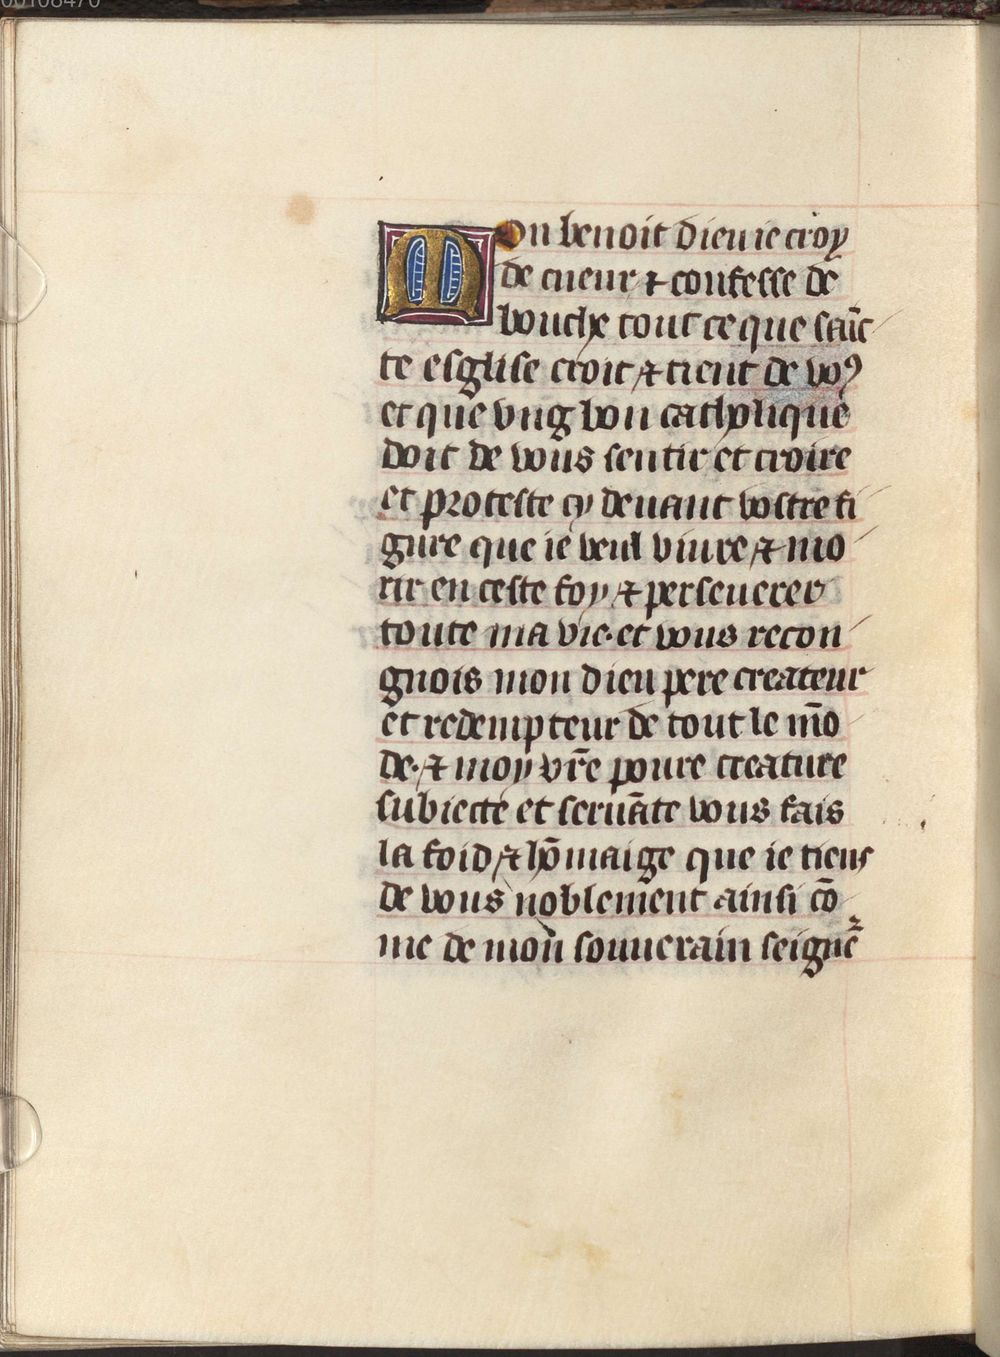 00108470
Mon benoit dieu ie croy
de cueur ⁊ confesse de
bouche tout ce que sāc
te esglise croit ⁊ tient de voꝰ
et que vng bon catholique
doit de vous sentir et croire
et proteste cy deuant vostre fi
gure que ie veul viure ⁊ mo
rir en ceste foy ⁊ perseuerer
toute ma vie· et vous recon
gnois mon dieu pere createur
et redempteur de tout le mō
de· ⁊ moy vr̄e poure creature
subiecte et seruāte vous fais
la foid ⁊ hōmaige que ie tiens
de vous noblement ainsi cō
me de mon souuerain seignē